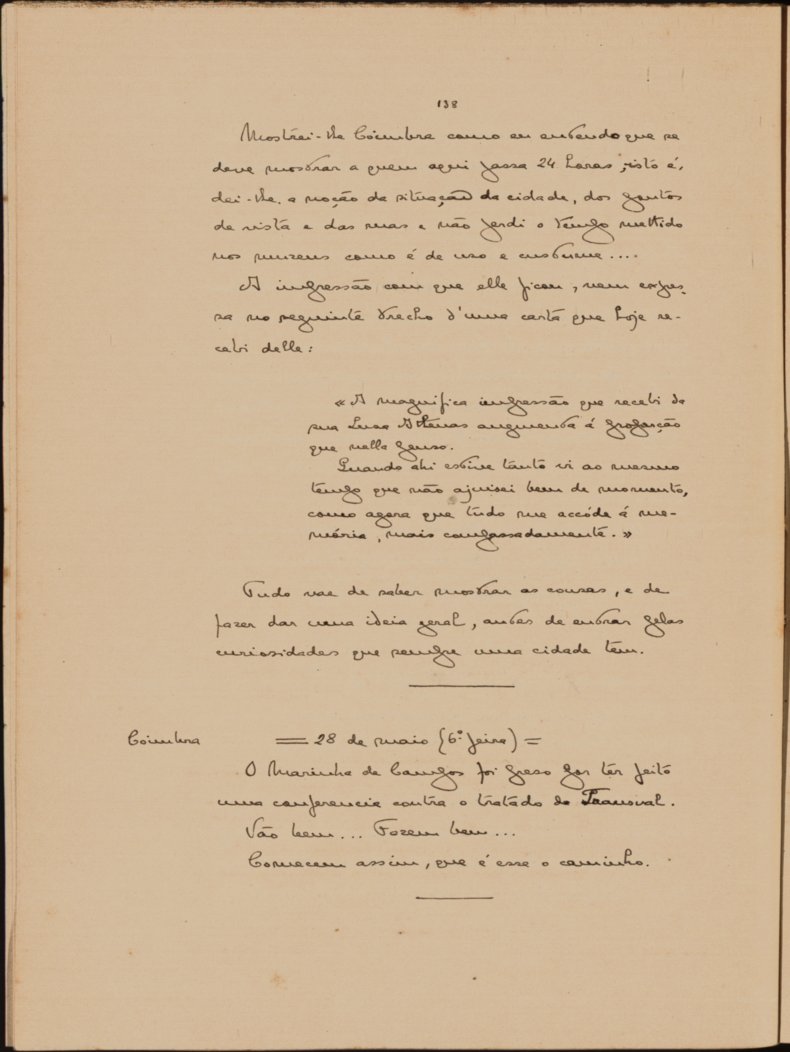 138
Mostrei-lhe Coimbra como eu entendo que se
deve mostrar a quem aqui passa 24 horas, isto é,
dei-lhe a noção da situação da cidade, dos pontos
de vista e das ruas e não perdi o tempo mettido
nos museus como é de uso e costume....
A impressão com que elle ficou, vem expres-
sa no seguinte trecho d'uma carta que hoje re-
cebi delle:
«A magnifica impressão que recebi da
sua Lusa Athenas augmenta á proporção
que nella penso.
Quando ahi estive tanto vi ao mesmo
tempo que não ajuisei bem de momento,
como agora que tudo me accóde á me-
mória, mais compassadamente.»
Tudo vae de saber mostrar as cousas, e de
fazer dar uma ideia geral, antes de entrar pelas
curiosidades que sempre uma cidade tem.
Coimbra = 28 de maio (6.ª feira) =
O Marinha de Campos foi preso por ter feito
uma conferencia contra o tratado do Transval.
Vão bem... Fazem bem...
Comecem assim, que é esse o caminho.